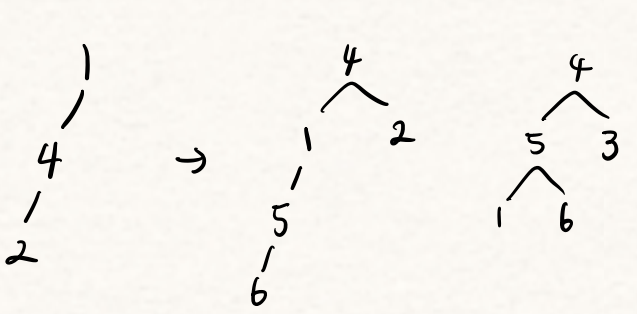 1
4
2
→
4
1 2
5
6
4
5 3
1 6